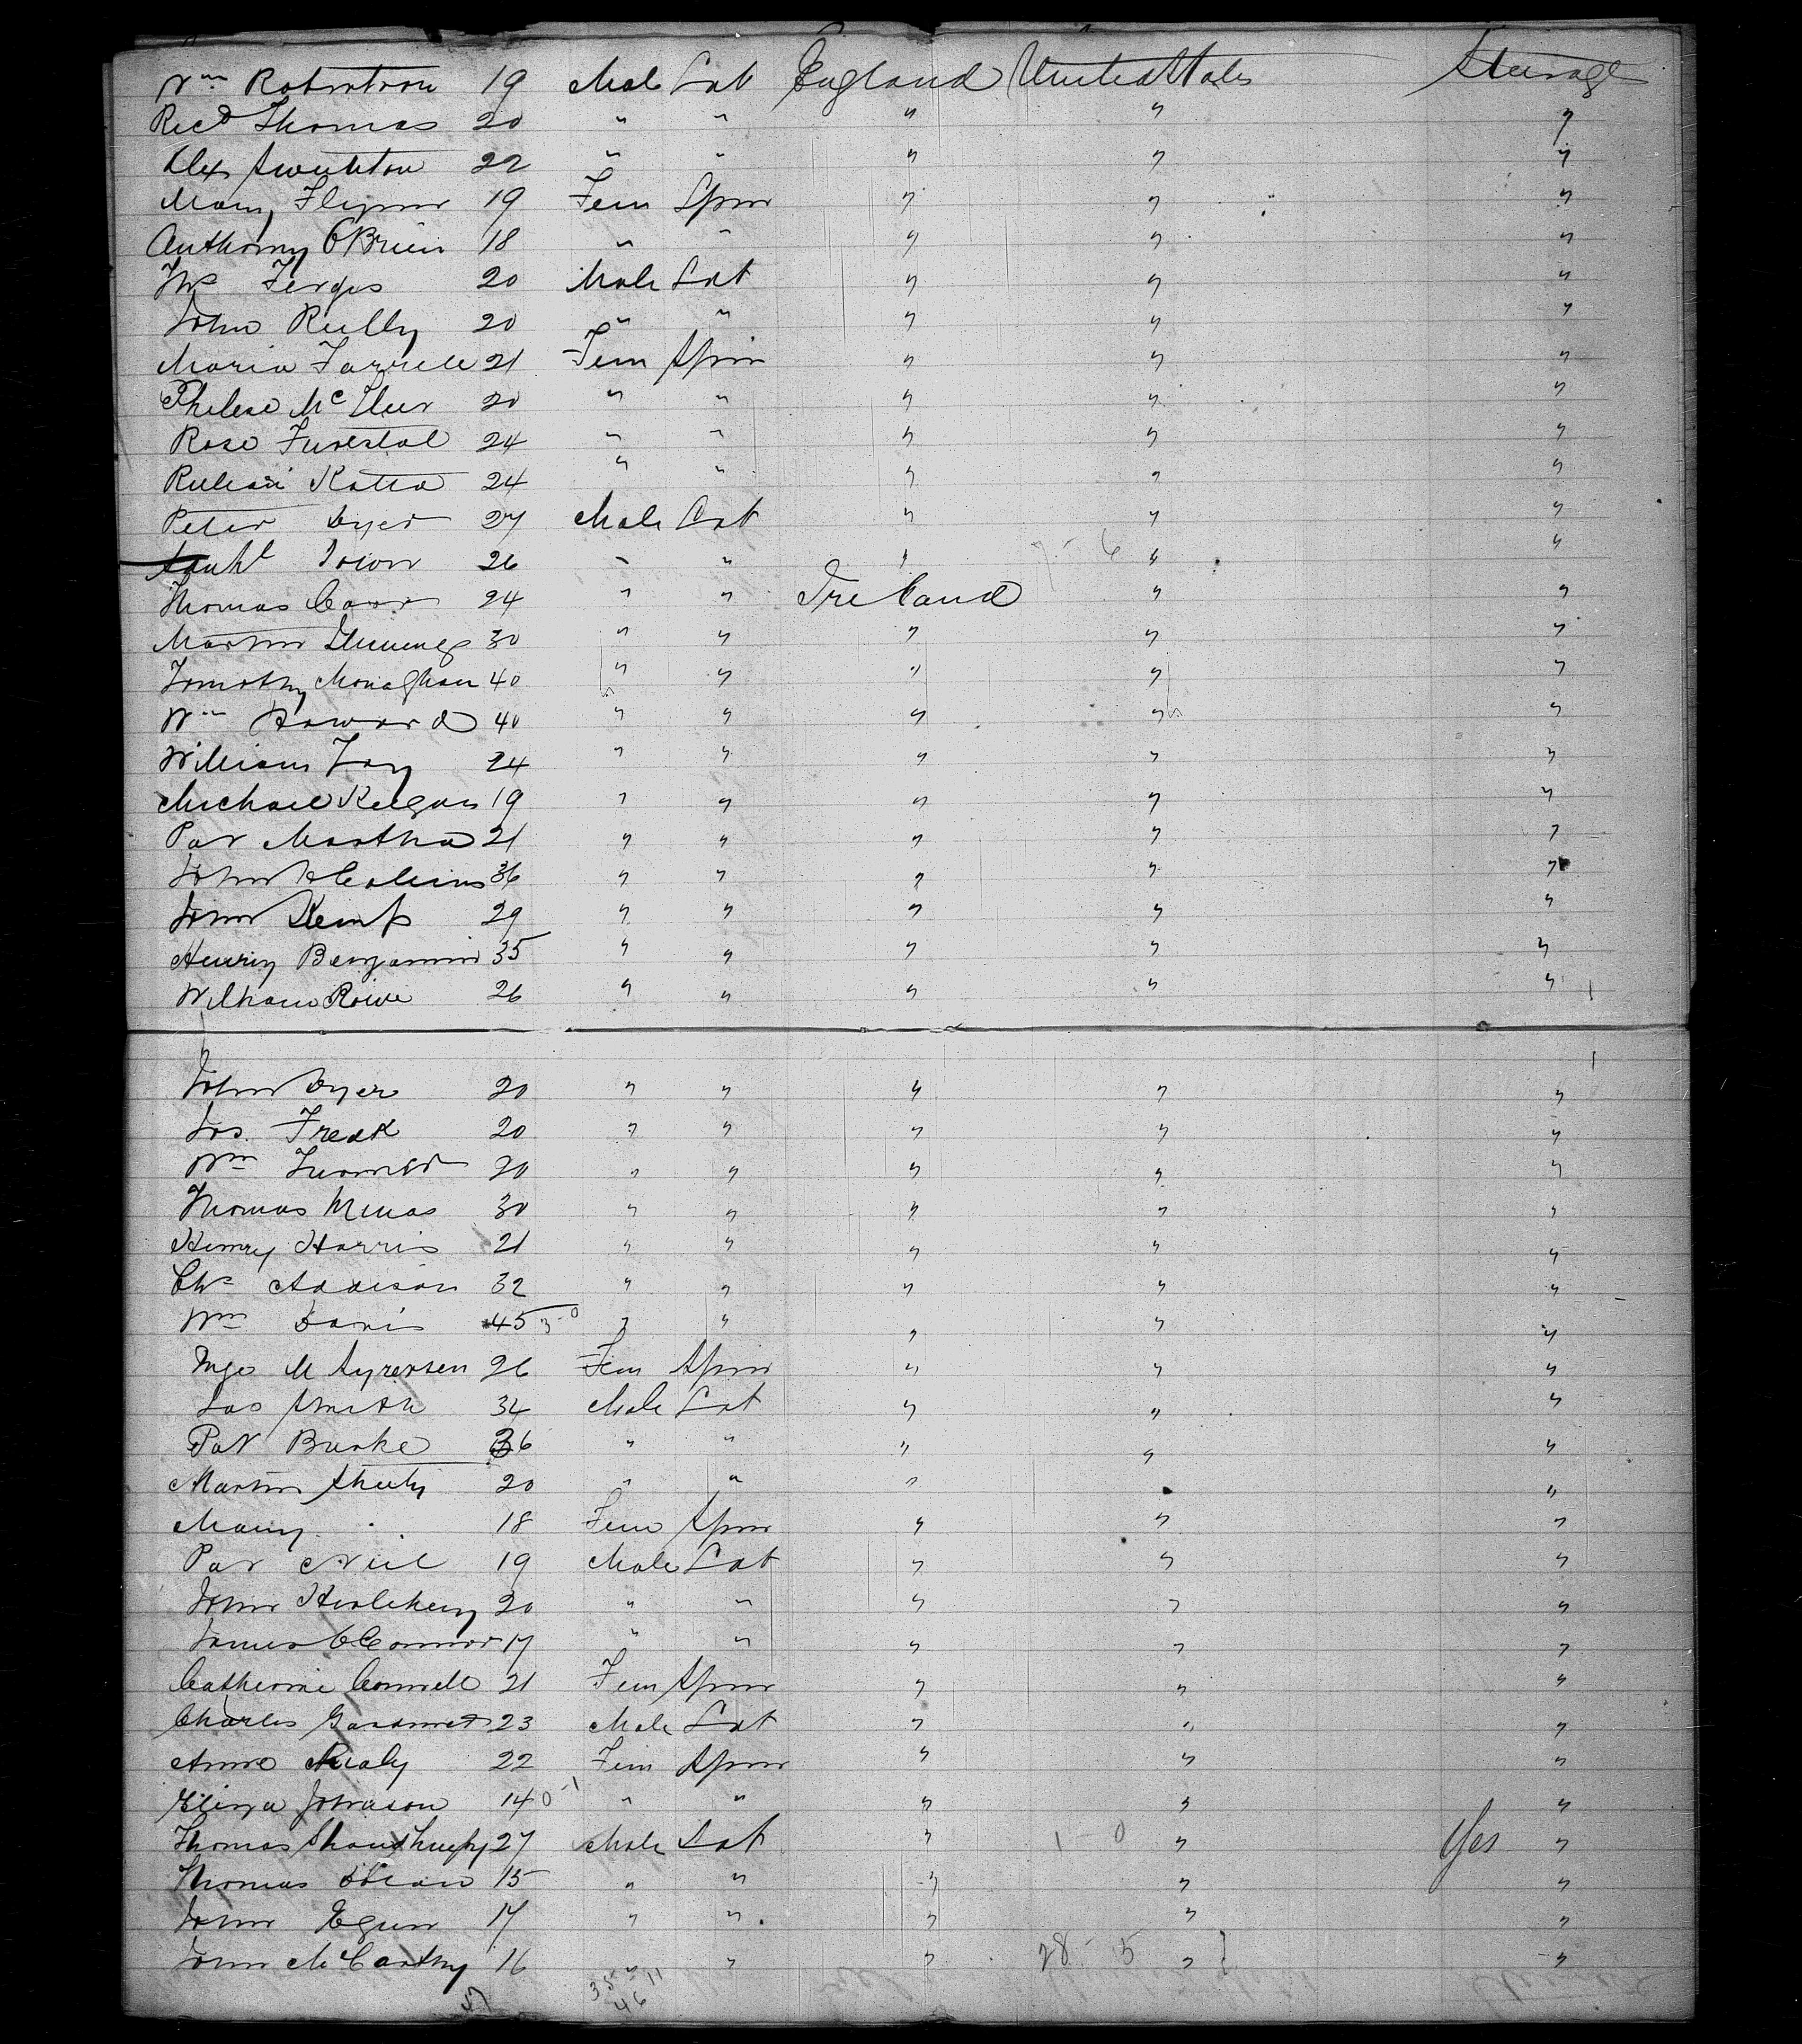 Wm Robertson 19 Male Lab England United States Steerage
Ricd Thomas 20 " " " " "
Alex Swinton 22 " " " " "
Mary Flynn 19 Fem Spin " " "
Anthony O'Brien 18 " " " " "
Ths Fergus 20 Male Lab " " "
John Reilly 20 " " " " "
Maria Farrell 21 Fem Spin " " "
Mc 20 " " " " "
Rose 24 " " " " "
24 " " " " "
Peter Dyer 27 Male Lab " " "
26 " " " 7-6 " "
Thomas Carr 24 " " Ireland " "
Martin 30 " " " " "
Timothy Monaghan 40 " " " " "
Wm Howard 40 " " " " "
William Foy 24 " " " " "
Michael Keegan 19 " " " " "
Pat Martha 21 " " " " "
John H Collins 36 " " " " "
John Kemp 29 " " " " "
Henry Benjamin 35 " " " " "
William Rowe 26 " " " " "
John Dyer 20 " " " " "
Jos. 20 " " " " "
Wm Turner 20 " " " " "
Thomas 30 " " " " "
Henry Harris 21 " " " " "
Chs Addison 32 " " " " "
Wm Davis 45 " " " " "
M 26 Fem Spin " " "
Jas Smith 34 Male Lab " " "
Pat Burke 36 " " " " "
Martin Sheehy 20 " " " " "
Mary " 18 Fem Spin " " "
Pat Neil 19 Male Lab " " "
John 20 " " " " "
James O'Connor 17 " " " " "
Catherine Connell 21 Fem Spin " " "
Charles Gardner 23 Male Lab " " "
Anne Nealy 22 Fem Spin " " "
Eliza Johnson 14 0-1 " " " " "
Thomas 27 Male Lab " 1-0 " Yes "
Thomas 15 " " " " "
John Egan 17 " " " " "
John McCarthy 16 " " " 28-5 " "
47 35 11
46